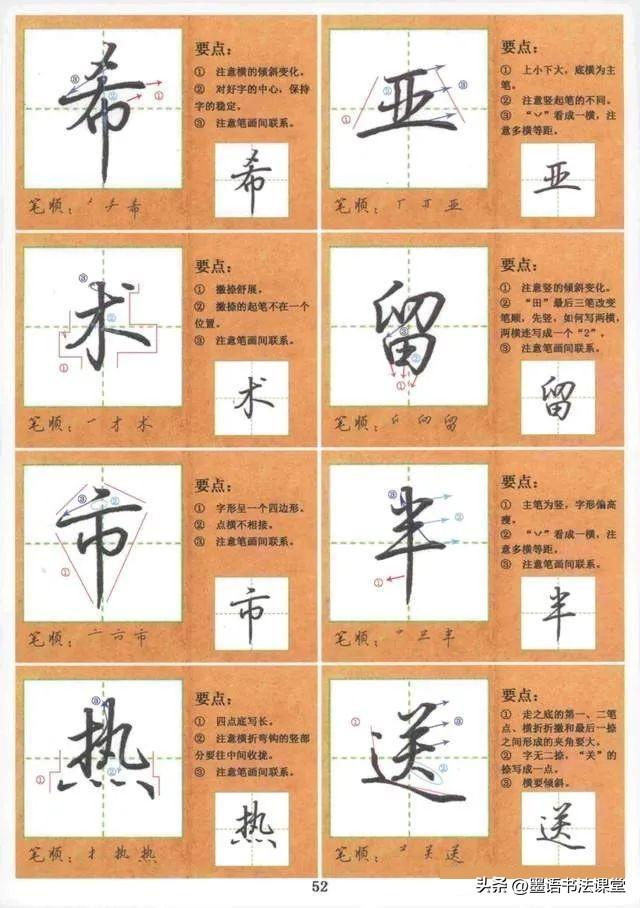 希
要点：
① 注意横的倾斜变化。
② 对好字的中心，保持
字的稳定。
③ 注意笔画间联系。
希
笔顺：希
亚
要点：
① 上小下大，底横为主
笔。
② 注意竖起笔的不同。
③ “丷”看成一横，注
意多横等距。
亚
笔顺：丅 丌 亚
术
要点：
① 撇捺舒展。
② 撇捺的起笔不在一个
位置。
③ 注意笔画间联系。
术
笔顺：一 才 术
留
要点：
① 注意竖的倾斜变化。
② “田”最后三笔改变
笔顺，先竖，如何写两横，
两横连写成一个“2”。
③ 注意笔画间联系。
留
笔顺：留
市
要点：
① 字形呈一个四边形。
② 点横不相接。
③ 注意笔画间联系。
市
笔顺：亠 市
半
要点：
① 主笔为竖，字形偏高
瘦。
② “丷”看成一横，注
意多横等距。
③ 注意笔画间联系。
半
笔顺：半
热
要点：
① 四点底写长。
② 注意横折弯钩的竖部
分要往中间收拢。
③ 注意笔画间联系。
热
笔顺：扌 执 热
送
要点：
① 走之底的第一、二笔
点、横折折撇和最后一捺
之间形成的夹角要大。
② 字无二捺，“关”的
捺写成一点。
③ 横要倾斜。
送
笔顺：关 送
52
头条 @墨语书法课堂